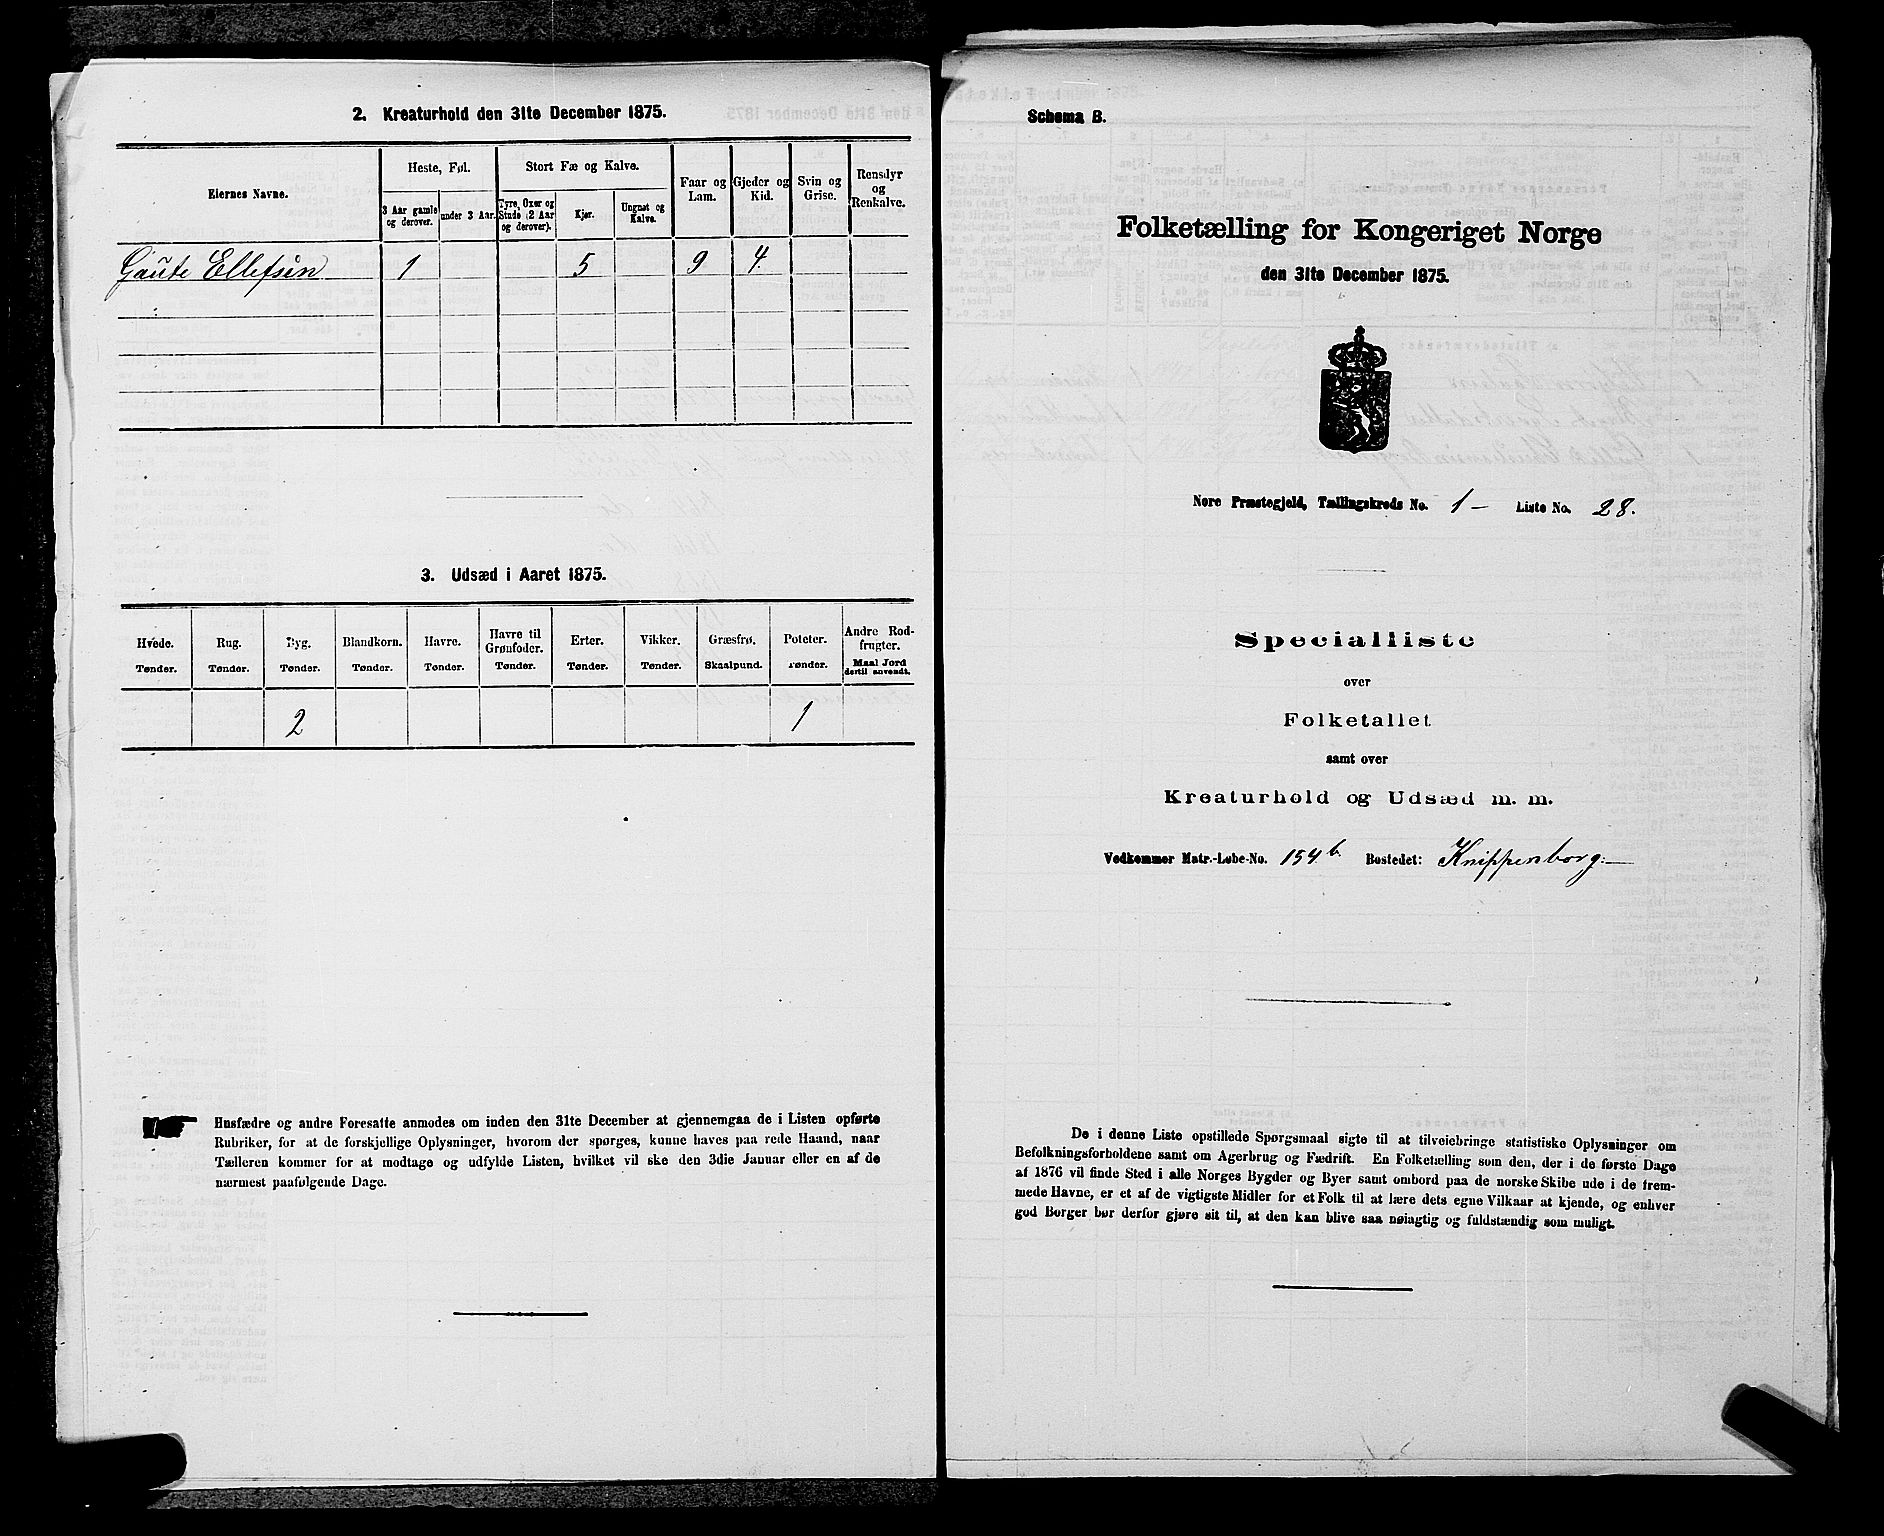 2. Kreaturhold den 31te December 1875.
Eiernes Navne.
Heste, Føl.
3 Aar gamle og derover.
under 3 Aar.
Stort Fæ og Kalve.
Tyre, Oxer og Stude (2 Aar og derover).
Kjør.
Ungnøt og Kalve.
Faar og Lam.
Gjeder og Kid.
Svin og Grise.
Rensdyr og Renkalve.
Gaute Ellefsen 1 5 9 4.
3. Udsæd i Aaret 1875.
Hvede. Rug. Byg. Blandkorn. Havre. Havre til Grønfoder. Erter. Vikker. Græsfrø. Poteter. Andre Rodfrugter.
Tønder. Tønder. Tønder. Tønder. Tønder. Tønder. Tønder. Tønder. Skaalpund. Tønder. Maal Jord dertil anvendt.
2 1
Husfædre og andre Foresatte anmodes om inden den 31te December at gjennemgaa de i Listen opførte
Rubriker, for at de forskjellige Oplysninger, hvorom der spørges, kunne haves paa rede Haand, naar
Tælleren kommer for at modtage og udfylde Listen, hvilket vil ske den 3die Januar eller en af de
nærmest paafølgende Dage.
Schema B.
Folketælling for Kongeriget Norge
den 31te December 1875.
Nore Præstegjeld, Tællingskreds No. 1 – Liste No. 28.
Specialliste
over
Folketallet
samt over
Kreaturhold og Udsæd m. m.
Vedkommer Matr.-Løbe-No. 154 b. Bostedet: Knippenborg:
De i denne Liste opstillede Spørgsmaal sigte til at tilveiebringe statistiske Oplysninger om
Befolkningsforholdene samt om Agerbrug og Fædrift. En Folketælling som den, der i de første Dage
af 1876 vil finde Sted i alle Norges Bygder og Byer samt ombord paa de norske Skibe ude i de frem-
mede Havne, er et af de vigtigste Midler for et Folk til at lære dets egne Vilkaar at kjende, og enhver
god Borger bør derfor gjøre sit til, at den kan blive saa nøiagtig og fuldstændig som muligt.